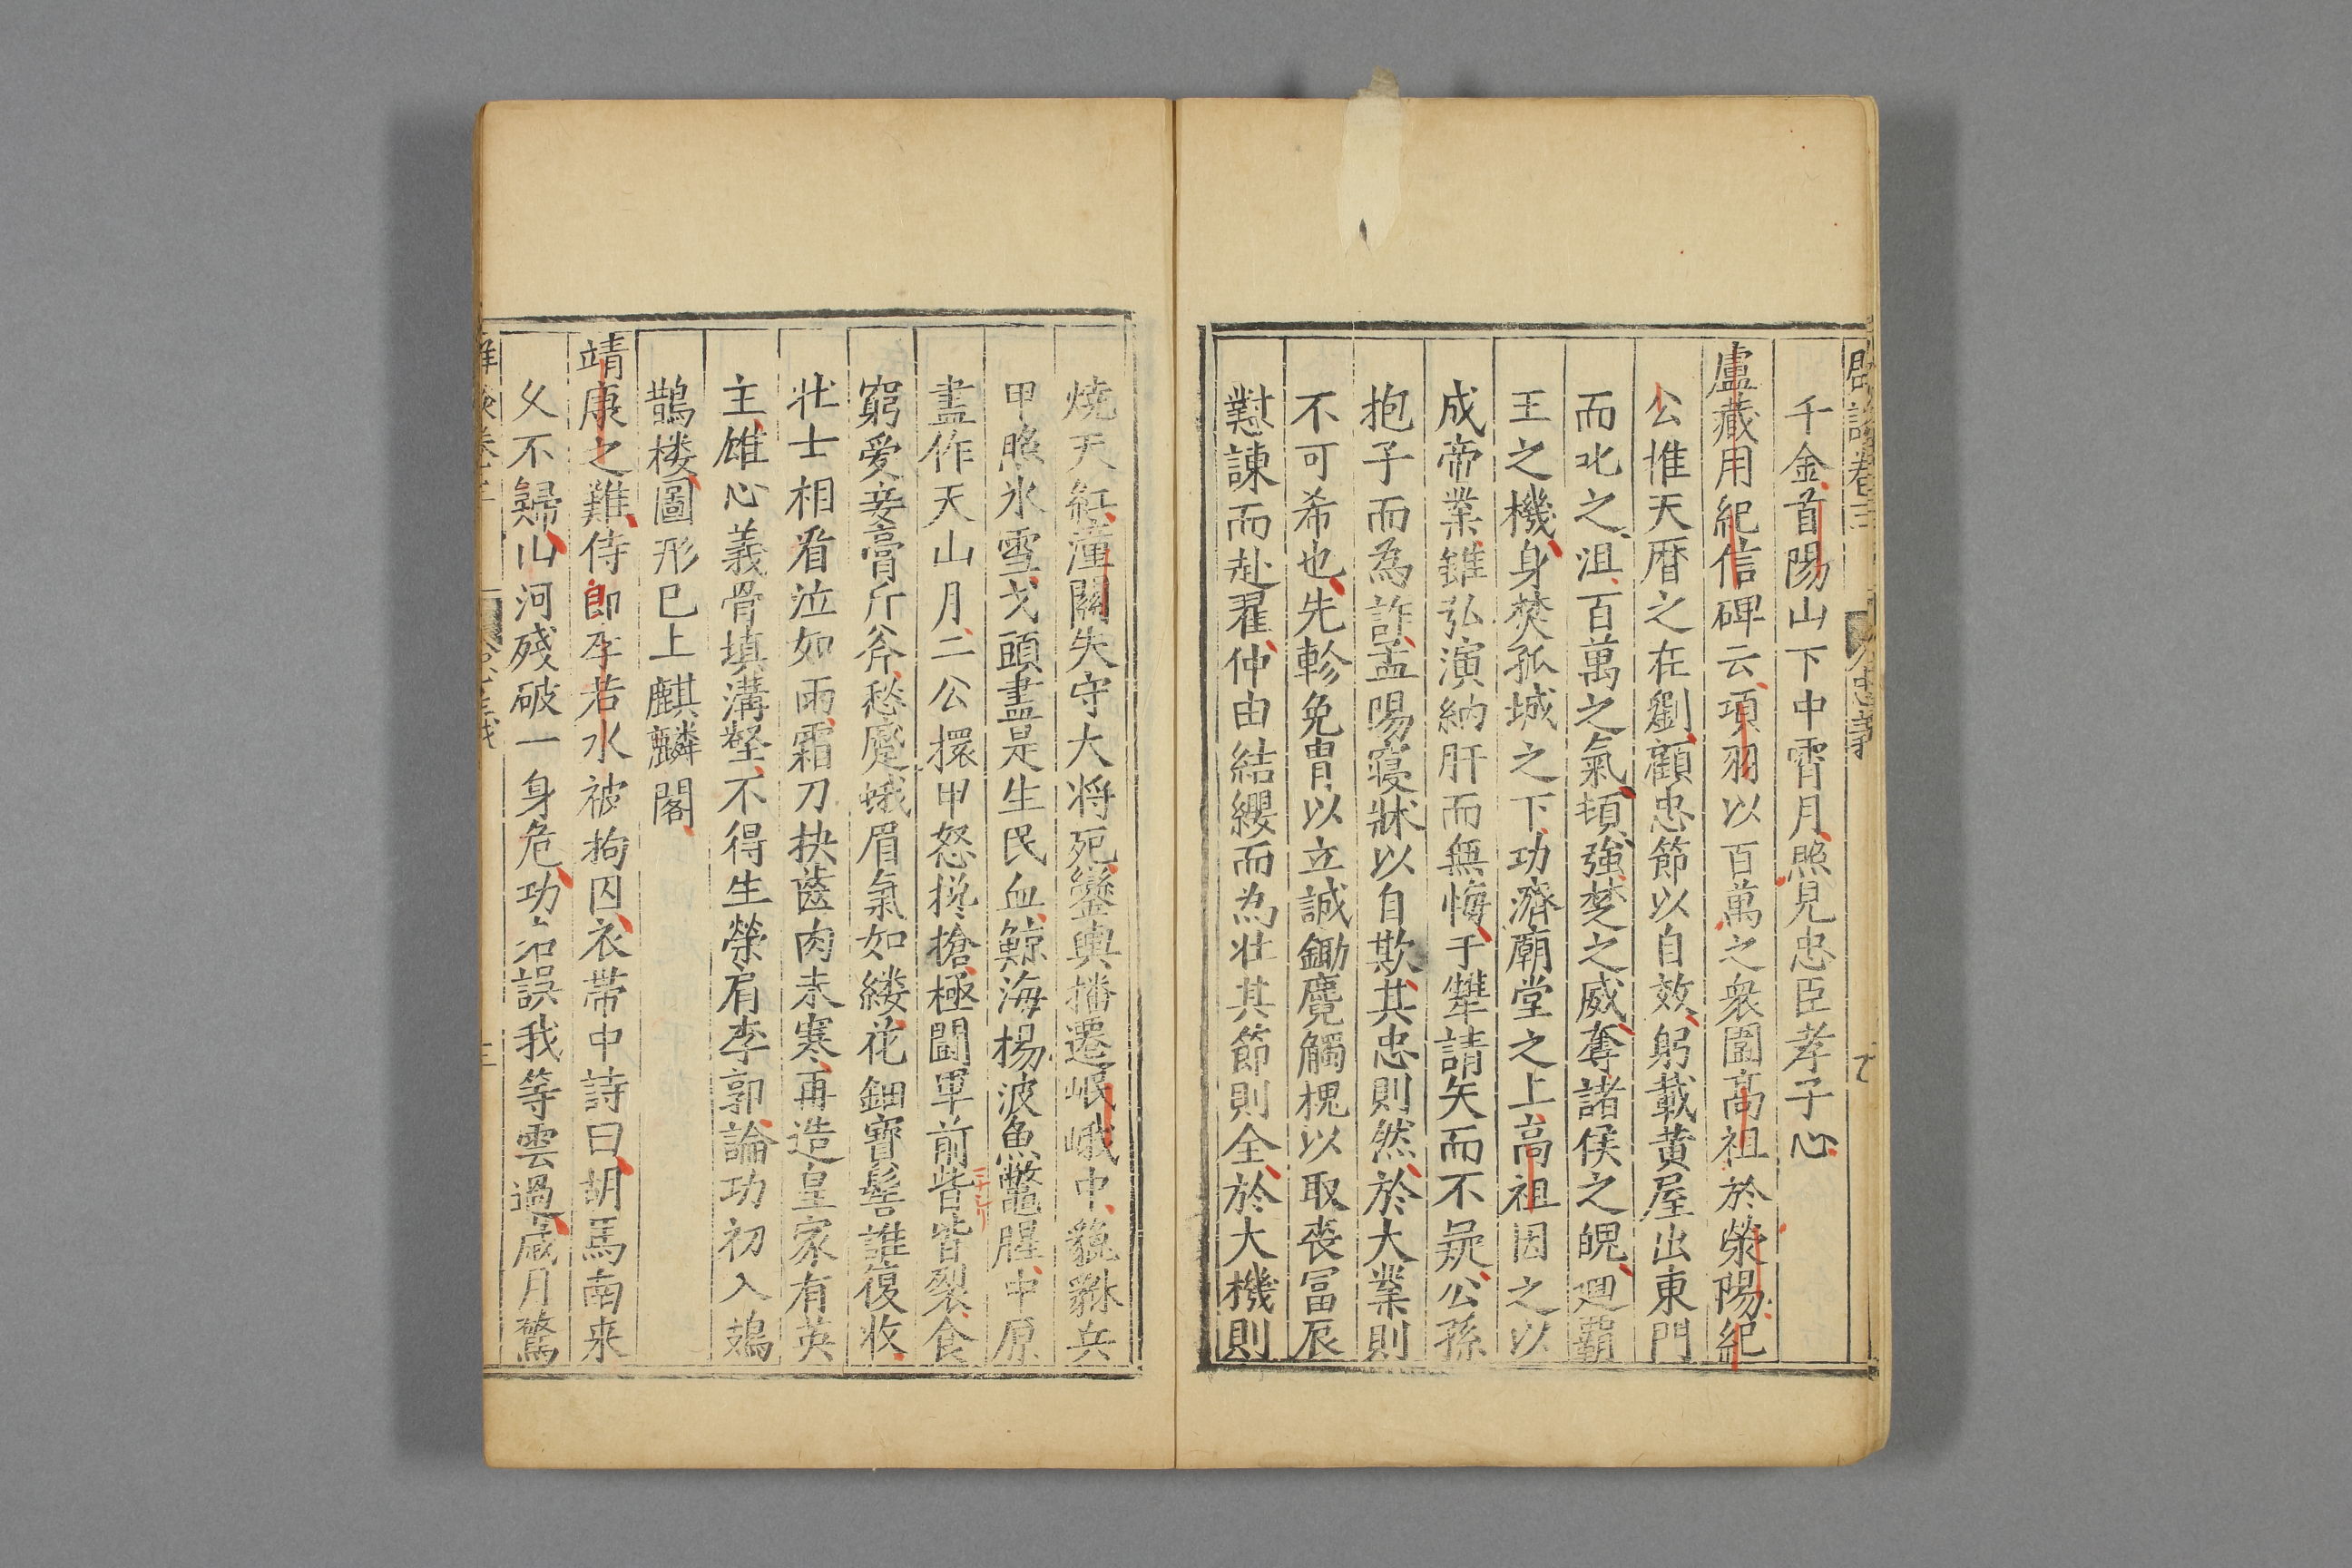 千金首陽山下中霄月照見忠臣孝子心
盧藏用紀信碑云項羽以百萬之衆圍髙祖於滎陽紀
公惟天曆之在劉顧忠節以自效躬載黄屋出東門
而北之沮百萬之氣頓強楚之威奪諸侯之魄廻霸
王之機身焚孤城之下功濟廟堂之上髙祖因之以
成帝業雖弘演納肝而無悔于犨請矢而不疑公孫
抱子而為詐孟陽寢牀以自欺其忠則然於大業則
不可希也先軫免冑以立誠鋤麑觸槐以取喪冨辰
懟諫而赴翟仲由結纓而為壯其節則全於大機則
燒天紅潼關失守大将死鑾輿播遷岷峨中貔貅兵
甲照氷雪戈頭盡是生民血鯨海楊波魚鱉腥中原
盡作天山月二公擐甲怒挺搶極闘軍前皆眥裂食
窮愛妾膏斤斧愁蹙蛾眉氣如縷花鈿寶髻誰復收
壮士相看泣如雨霜刀抉齒肉未寒再造皇家有英
主雄心義骨填溝壑不得生榮肩李郭論功初入鳷
鵲楼圖形已上麒麟閣
靖康之難侍郎李若水被拘囚衣帶中詩曰胡馬南来
乆不歸山河殘破一身危功名誤我等雲過歳月驚